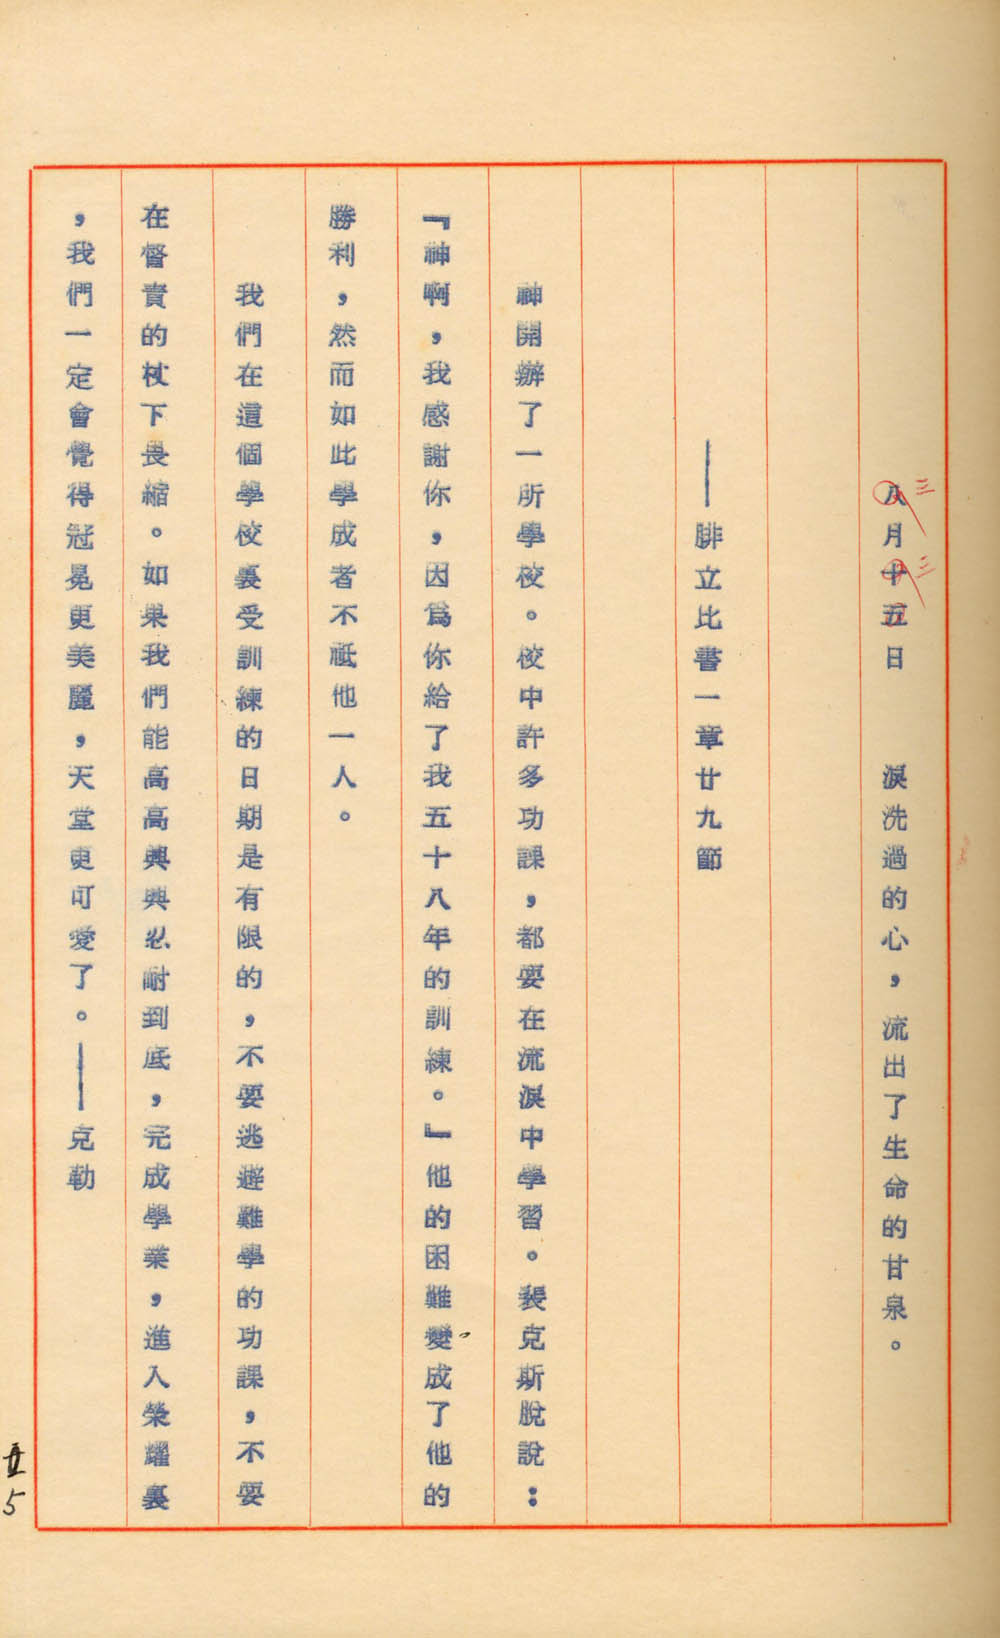 八月十五日　　淚洗過的心，流出了生命的甘泉。
三
三
——腓立比書一章廿九節
神開辦了一所學校。校中許多功課，都要在流淚中學習。裴克斯脫說：
『神啊，我感謝你，因為你給了我五十八年的訓練。』他的困難變成了他的
勝利，然而如此學成者不祗他一人。
我們在這個學校裏受訓練的日期是有限的，不要逃避難學的功課，不要
在督責的杖下畏縮。如果我們能高高興興忍耐到底，完成學業，進入榮耀裏
，我們一定會覺得冠冕更美麗，天堂更可愛了。——克勒
5